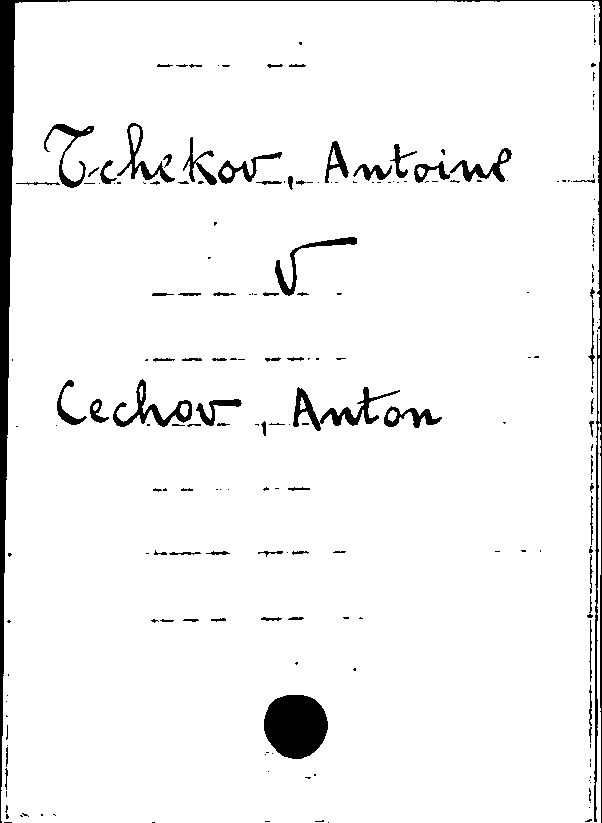 Tchekov, Antoine
V
Cechov, Anton